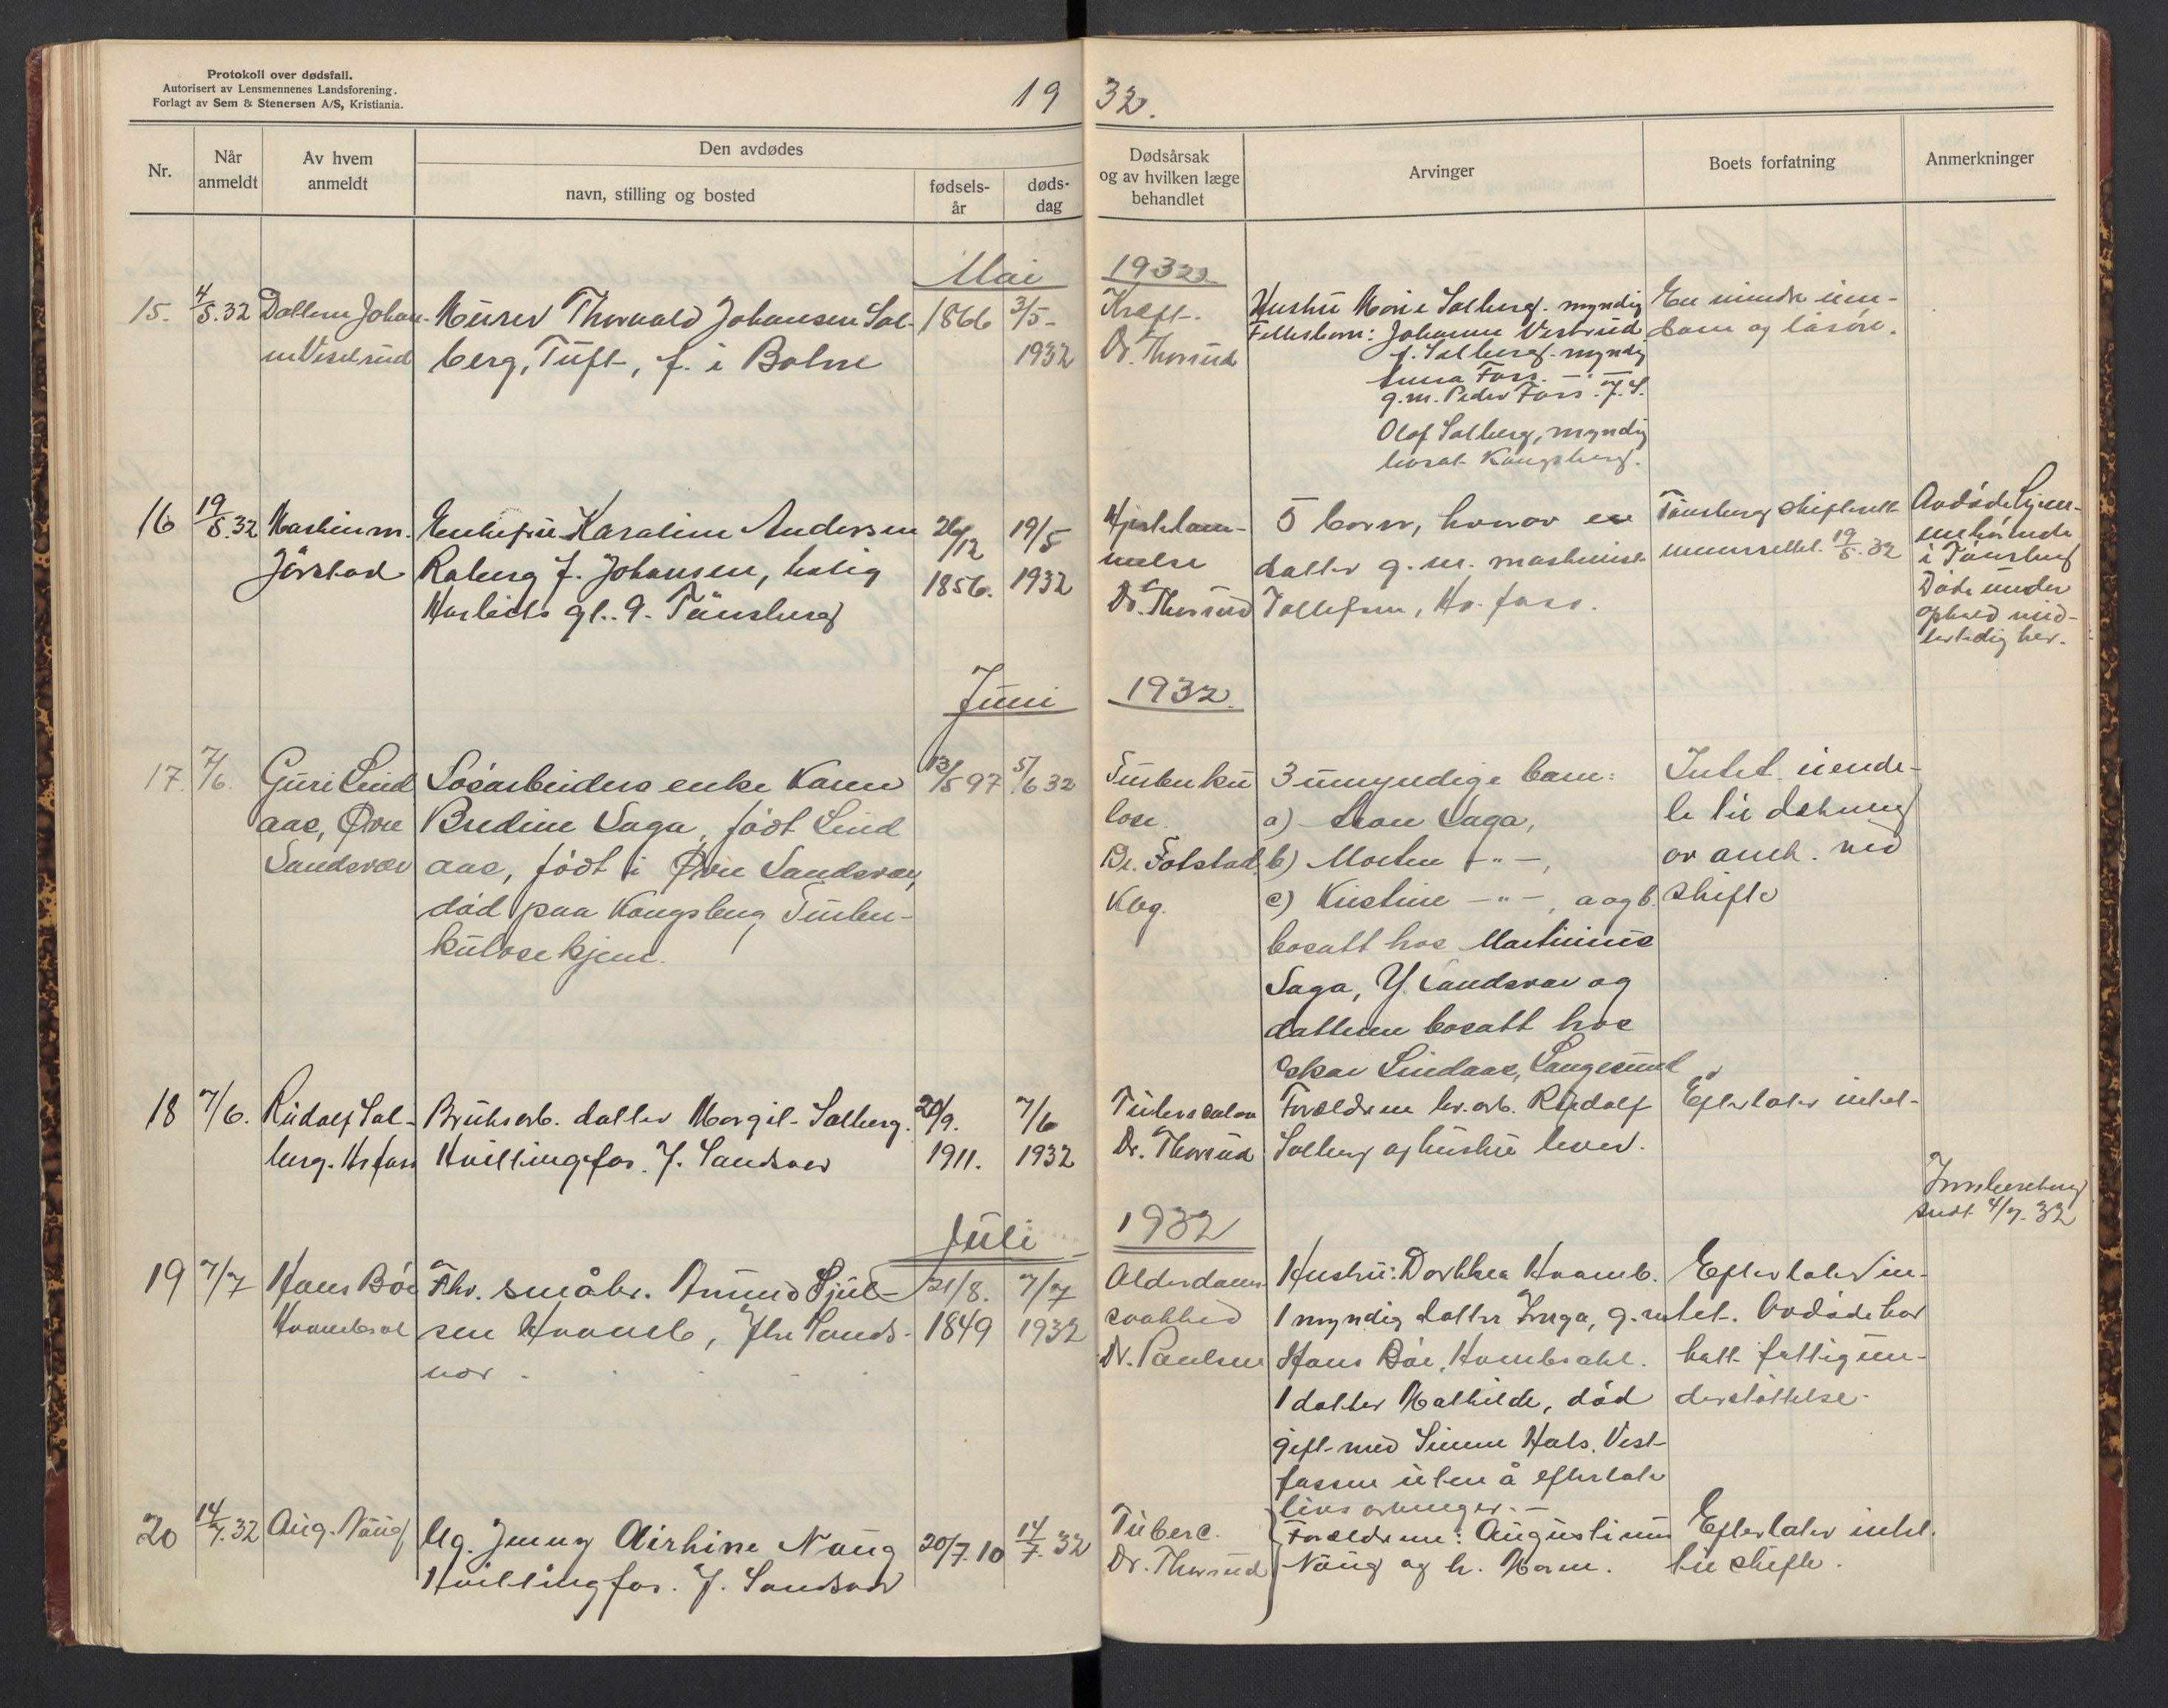 Protokoll over dødsfall.
Autorisert av Lensmennenes Landsforening.
Forlagt av Sem & Stenersen A/S, Kristiania.
19 32.
Nr.
Når
anmeldt
Av hvem
anmeldt
Den avdødes
navn, stilling og bosted
fødsels-
år
døds-
dag
Dødsårsak
og av hvilken læge
behandlet
Arvinger
Boets forfatning
Anmerkninger
Mai 1932
15.
4/5.32
Datteren Johan-
ne Vestrud
Murer Thorvald Johansen Sol-
berg, Tuft, f. i
1866
3/5-
1932
Kræft.
Dr. Thorsrud
Hustru Marie Solberg. myndig
Fellesbarn: Johanne Vestrud
f. Solberg. myndig
Anna Foss. -"-
g.m. Peder Foss. J. S.
Olaf Solberg, myndig
bosat Kongsberg.
En mindre inn-
bo og løsøre.
16
19/5.32
Maskinm.
Jørstad
Enkefru Karoline Andersen
Roberg f. Johansen, bolig
gt. 9. Tønsberg
26/12
1856.
19/5
1932
Hjertelam-
melse
Dr. Thorsrud
5 barn, hvorav en
datter g. m. maskinist
Tollefsen, Hv.foss.
Tønsberg skifterett
underrettet 19/5.32
Avdøde hjem-
mehørende
i Tønsberg
Døde under
ophold mid-
lertidig her.
Juni 1932.
17.
7/6.
Guri Lind
aas, Øvre
Sandsvær
Løsarbeiders enke Karen
Bredine Saga, født Lind
aas, født i Øvre Sandsvær,
død paa Kongsberg Tuber-
kulosehjem.
13/5 97
5/6 32
Tuberku
lose.
Dr. Fotstad
Kbg.
3 umyndige barn:
a) Saga,
b) Morten -"-,
c) Kristine -"-, a og b.
bosatt hos Martinius
Saga, Y. Sandsvær og
datteren bosatt hos
Oskar Lindaas, Langesund
Intet uende-
le til dekning
av ved
skifte
18
7/6.
Rudolf Sol-
berg. Hvfoss
Bruksarb. datter Margit Solberg.
Hvittingfos. Y. Sandsvær
20/9.
1911.
7/6
1932
Tuberculose
Dr. Thorsrud
Forældrene br.arb. Rudolf
Solberg og hustru lever.
Efterlater intet-
Juli 1932
19
7/7
Hans Bøe
Fhv. småbr. Amund Gjul-
sen Hvamb, Ytre Sands-
vær
21/8.
1849
7/7
1932
Alderdoms-
svakhed
Dr. Paulsen
Hustru: Dorthea Hvamb.
1 myndig datter Inga, g. m
Hans Bøe, Hvambsahl.
1 datter Mathilde, død
gift med Simen Hals, Vest-
fossen uten å efterlate
livsarvinger. -
Efterlater in-
tet. Avdøde har
hatt fattigun-
derstøttelse.
Innberetning
sendt 4/7.32
20
14/7.32
Aug. Naug
Ug. Jenny Naug
Hvittingfos. Y. Sandsvær
20/7.10
14/7.32
Tuberc.
Dr. Thorsrud
Forældrene: Augustinus
Naug og h. Maren.
Efterlater intet
til skifte.